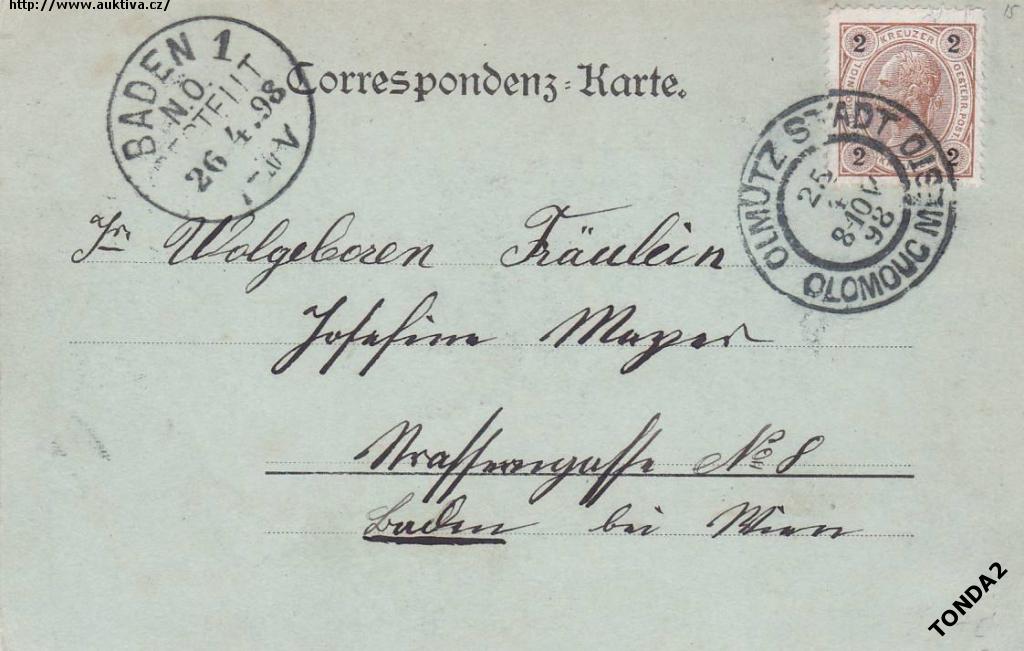 http://www.auktiva.cz/
15
BADEN 1
N.Ö.
BESTELLT
26.4.98
Correspondenz-Karte.
2 KREUZER 2
2 2
OESTERR. POST.
OLMÜTZ STADT
OLOMOUC MĚSTO
25
4
8-10V
98
Ihr Wolgeboren Fräulein
Josefine Mayer
Strassergasse No 8
Baden bei Wien
TONDA2